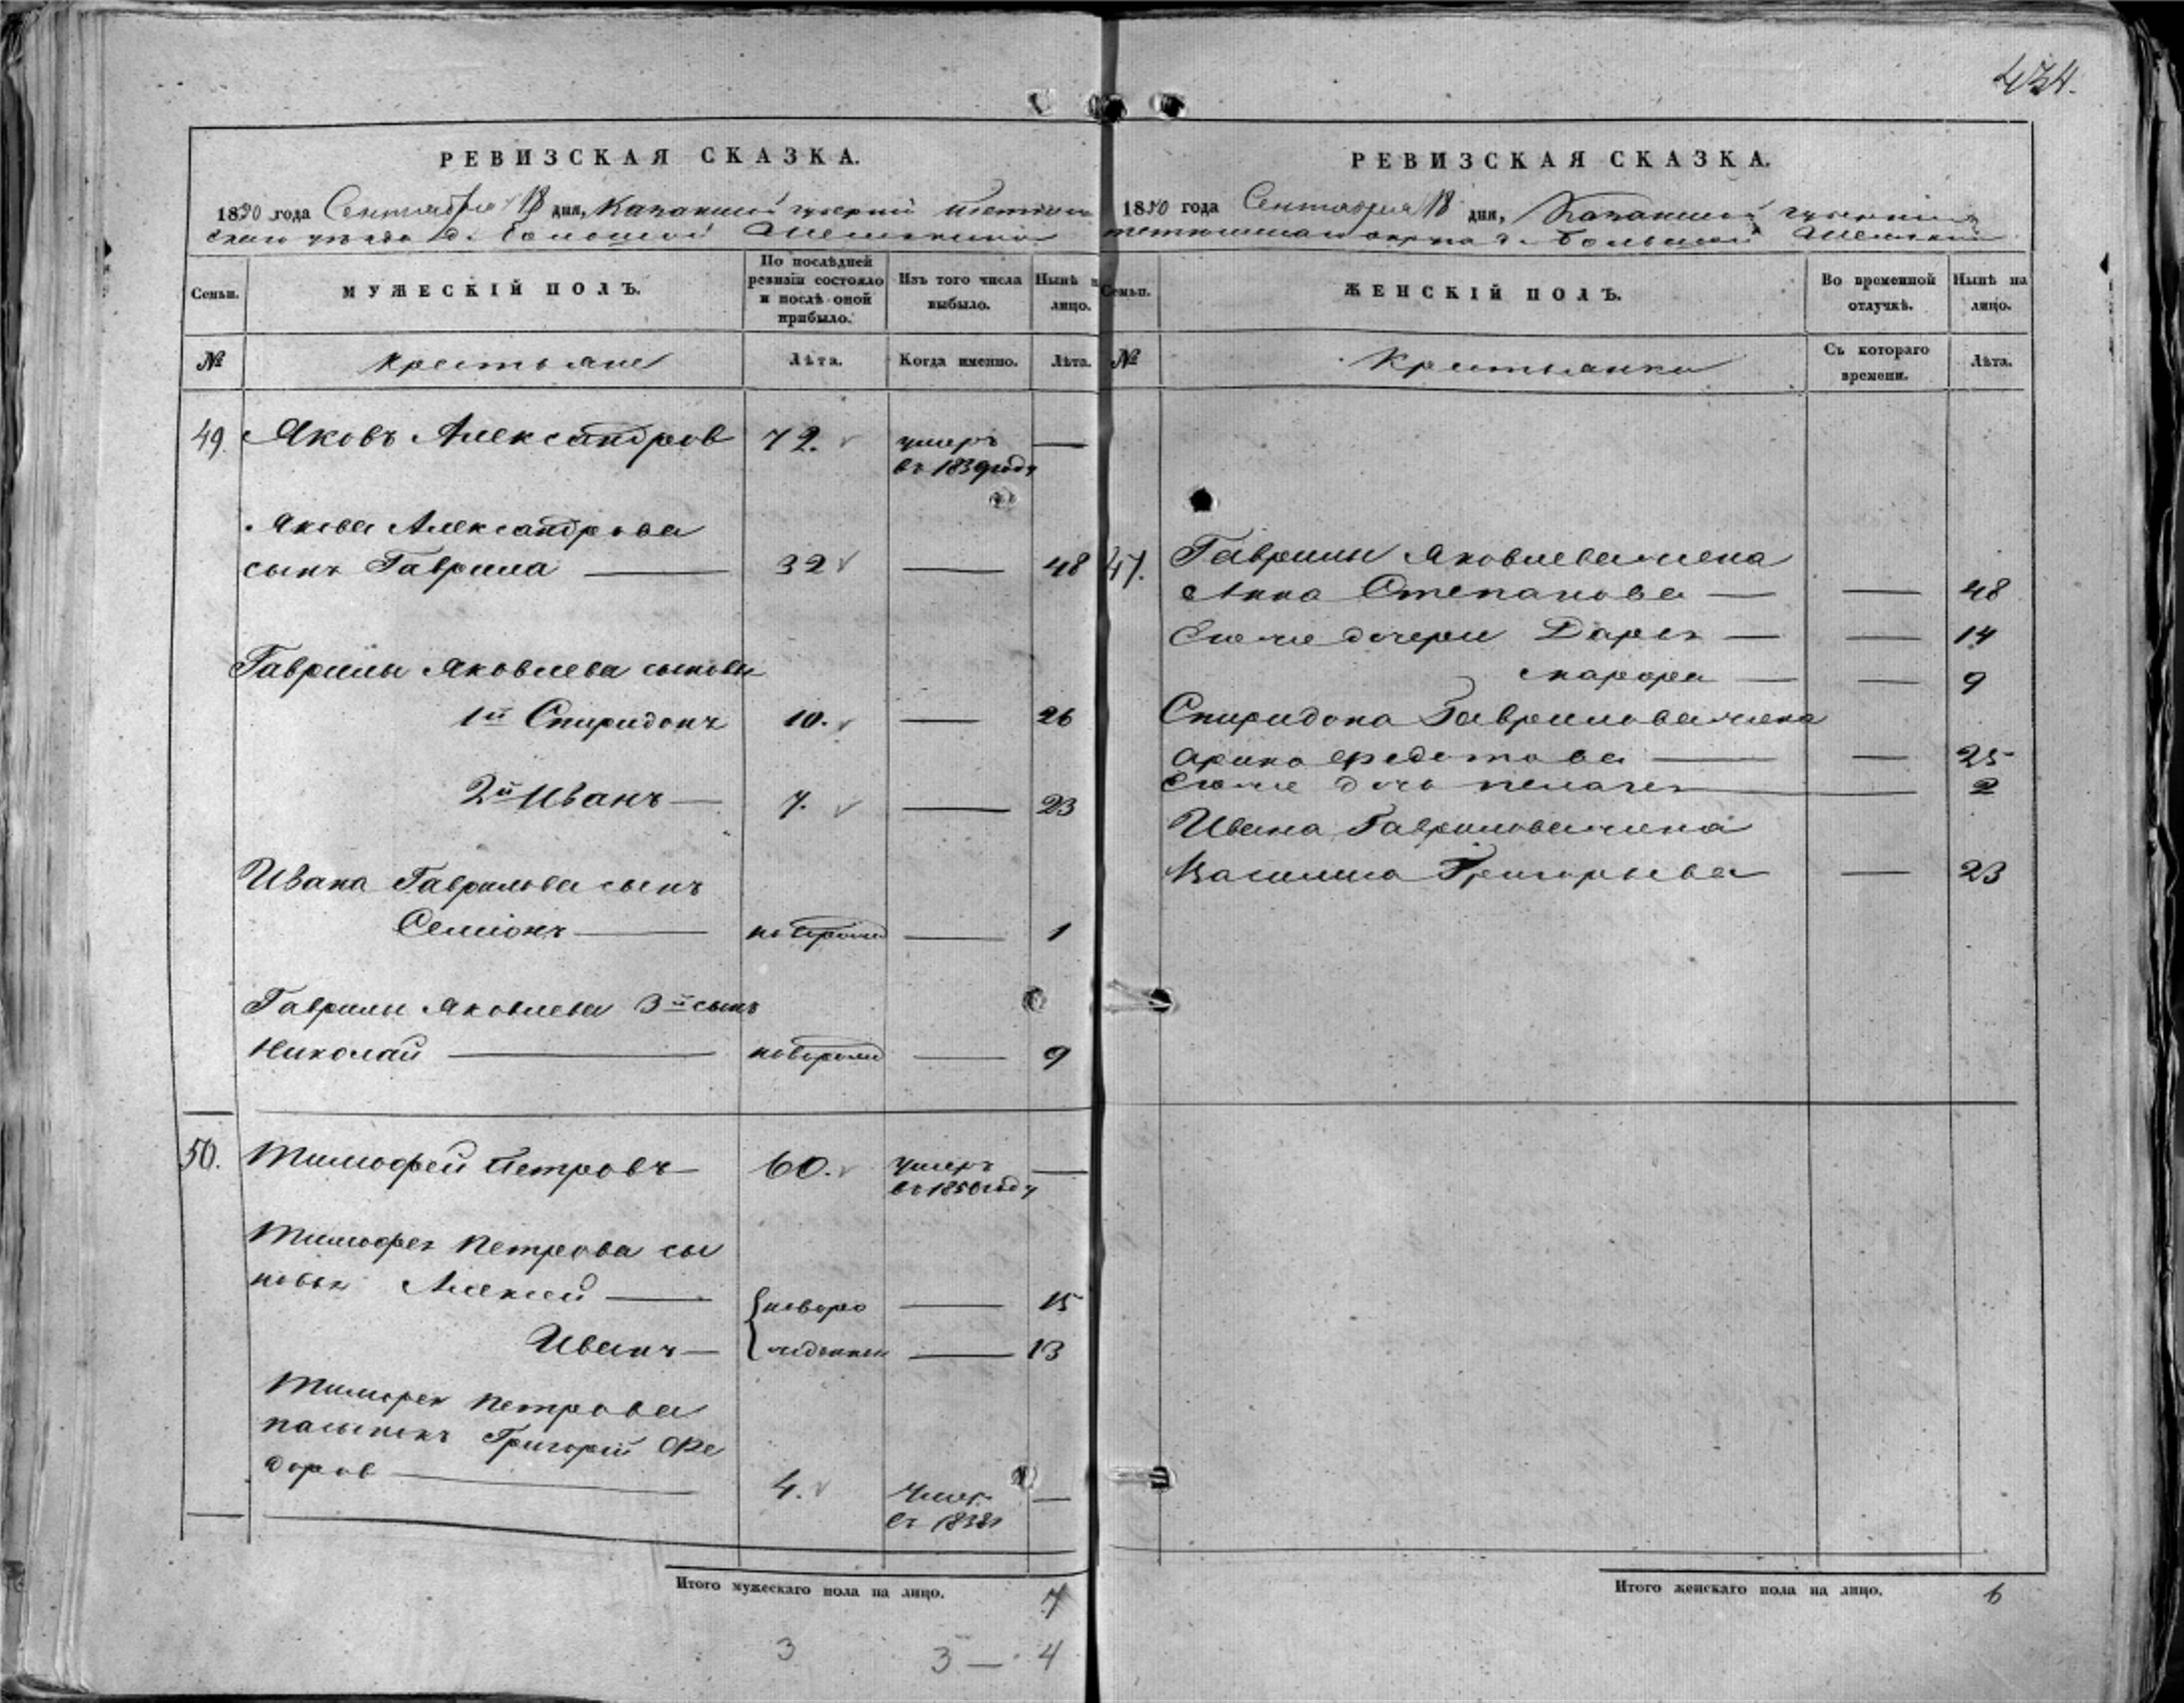 434.
РЕВИЗСКАЯ СКАЗКА.
1850 года Сентября 18 дня, Казанской губернии Тетюш
скаго уезда д.
Семьи.
МУЖЕСКІЙ ПОЛЪ.
По послѣдней ревизіи состояло и послѣ оной прибыло.
Изъ того числа выбыло.
Нынѣ на лицо.
№
Крестьяне
Лѣта.
Когда именно.
Лѣта.
49. Яковъ Александров 72. умеръ —
въ 1839 году
Якова Александрова
сынъ Гаврила — 32 — 48
Гаврилы Яковлева сыновья
1й Спиридонъ 10. — 26
2й Иванъ — 7. — 23
Ивана Гаврилова сынъ
Семіонъ — новорожд — 1
Гаврилы Яковлева 3й сынъ
Николай — новорожд — 9
50. Тимофей Петровъ — 60. умеръ —
въ 1850 году
Тимофея Петрова сы
новья Алексей — новоро — 15
Иванъ — жденные — 13
Тимофея Петрова
пасынокъ Григорій Фе
доров — 4. умер. —
въ 1838
Итого мужескаго пола на лицо. 7
3 3 — 4
РЕВИЗСКАЯ СКАЗКА.
1850 года Сентября 18 дня, Казанской губернии
Тетюшскаго округа д. Большой
Семьи.
ЖЕНСКІЙ ПОЛЪ.
Во временной отлучкѣ.
Нынѣ на лицо.
№
Крестьянки
Съ котораго времени.
Лѣта.
47. Гаврилы Яковлева жена
Анна Степанова — — 48
Ево же дочери Дарья — — 14
Марфа — — 9
Спиридона Гаврилова жена
Арина Федотова — — 25
Ево же дочь Пелагея — 2
Ивана Гаврилова жена
Василиса Григорьева — 23
Итого женскаго пола на лицо. 6